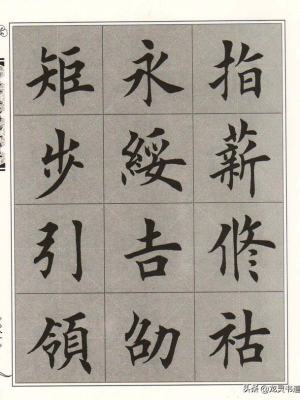 指薪修祜
永綏吉劭
矩步引領
头条@龙贝书道